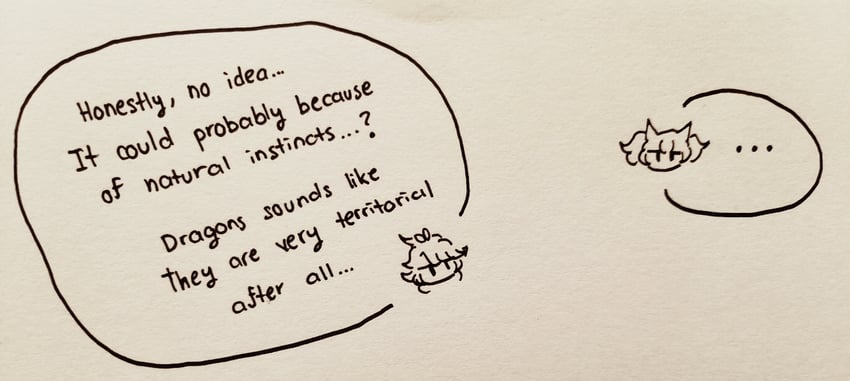 Honestly, no idea...
It could probably because
of natural instincts...?
Dragons sounds like
they are very territorial
after all...
...